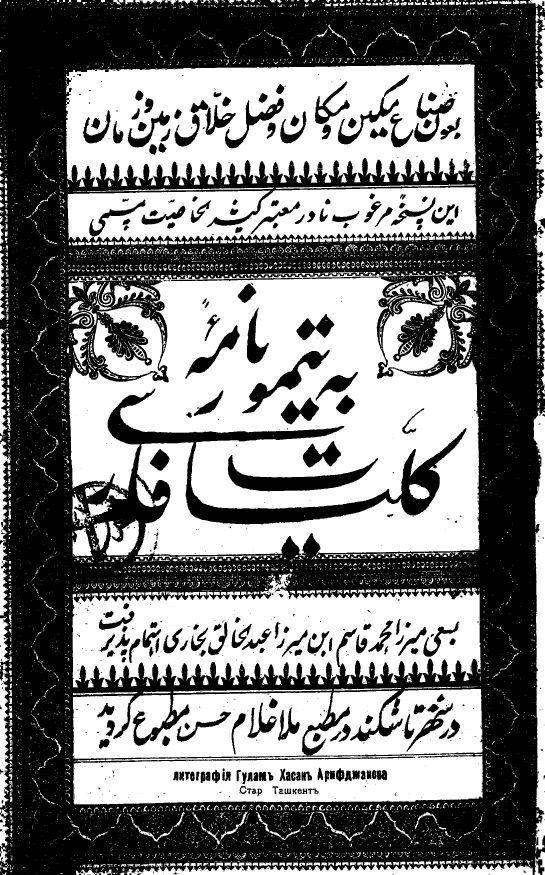 بعون صناع مکین و مکان و فضل خلاق زمین و زمان
این نسخه مرغوب نادر معتبر کثیر الخاصیت مسمی
به تیمور نامهٔ
کلیات فارسی
بسعی میرزا محمد قاسم ابن میرزا عبدالخالق بخاری اهتمام پذیرفت
در شهر تاشکند در مطبع ملا غلام حسن مطبوع گردید
литографія Гуламъ Хасанъ Арифджанова
Стар Ташкентъ